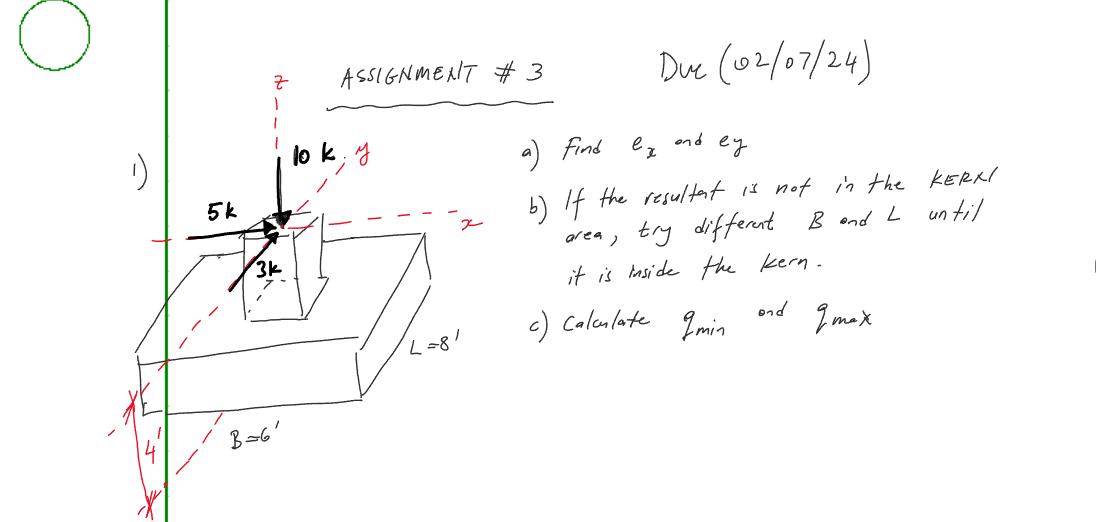 ASSIGNMENT # 3
Due (02/07/24)
1)
z
10 k
y
5k
x
3k
L=8'
B=6'
4'
a) Find ex and ey
b) If the resultant is not in the KERN
area, try different B and L until
it is inside the kern.
c) Calculate qmin and qmax